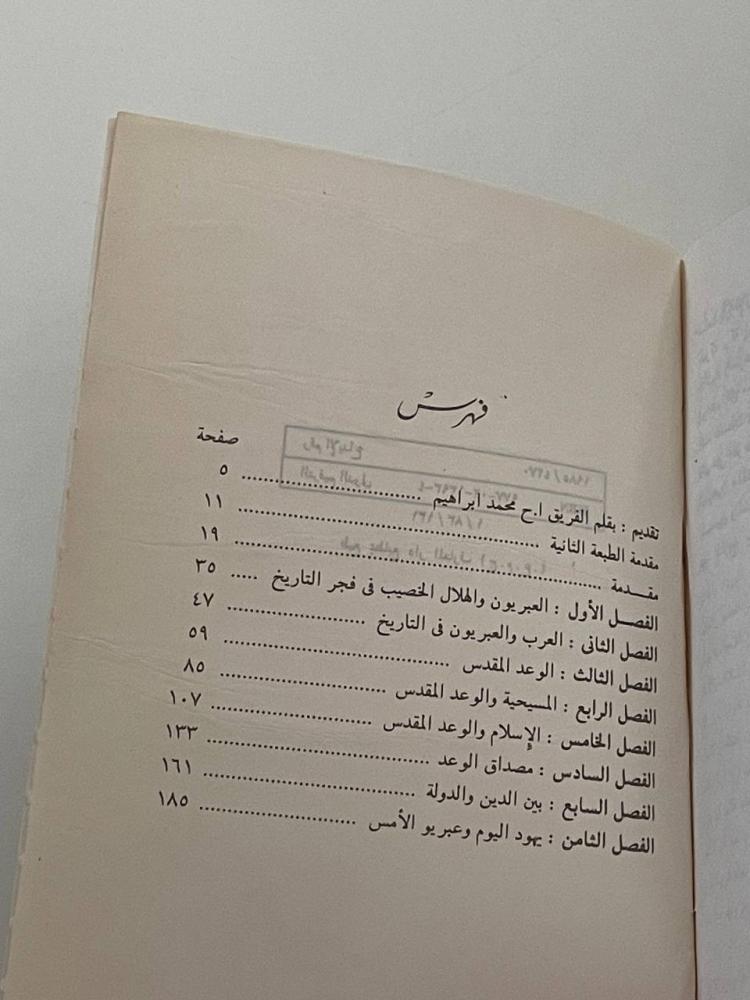 فهرس
صفحة
تقديم : بقلم الفريق ا.ح محمد ابراهيم ٥
مقدمة الطبعة الثانية ١١
مقـــدمة ١٩
الفصل الأول : العبريون والهلال الخصيب فى فجر التاريخ ٣٥
الفصل الثانى : العرب والعبريون فى التاريخ ٤٧
الفصل الثالث : الوعد المقدس ٥٩
الفصل الرابع : المسيحية والوعد المقدس ٨٥
الفصل الخامس : الإسلام والوعد المقدس ١٠٧
الفصل السادس : مصداق الوعد ١٣٣
الفصل السابع : بين الدين والدولة ١٦١
الفصل الثامن : يهود اليوم وعبريو الأمس ١٨٥